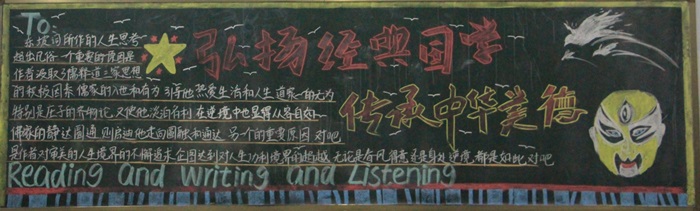 To:
东坡词所作的人生思考
超出凡俗一个重要的原因是
作者汲取了儒释道三家思想
的积极因素儒家的入世和有为引导他热爱生活和人生道家的无为
特别是庄子的齐物论又使他淡泊名利在逆境中也显得从容自如
佛家的静达圆通则启迪他走向圆融和通达另一个的重要原因对吧
是作者对审美的人生境界的不懈追求企图达到对人生功利境界的超越无论是春风得意还是身处逆境都是如此对吧
弘扬经典国学
传承中华美德
Reading and Writing and Listening